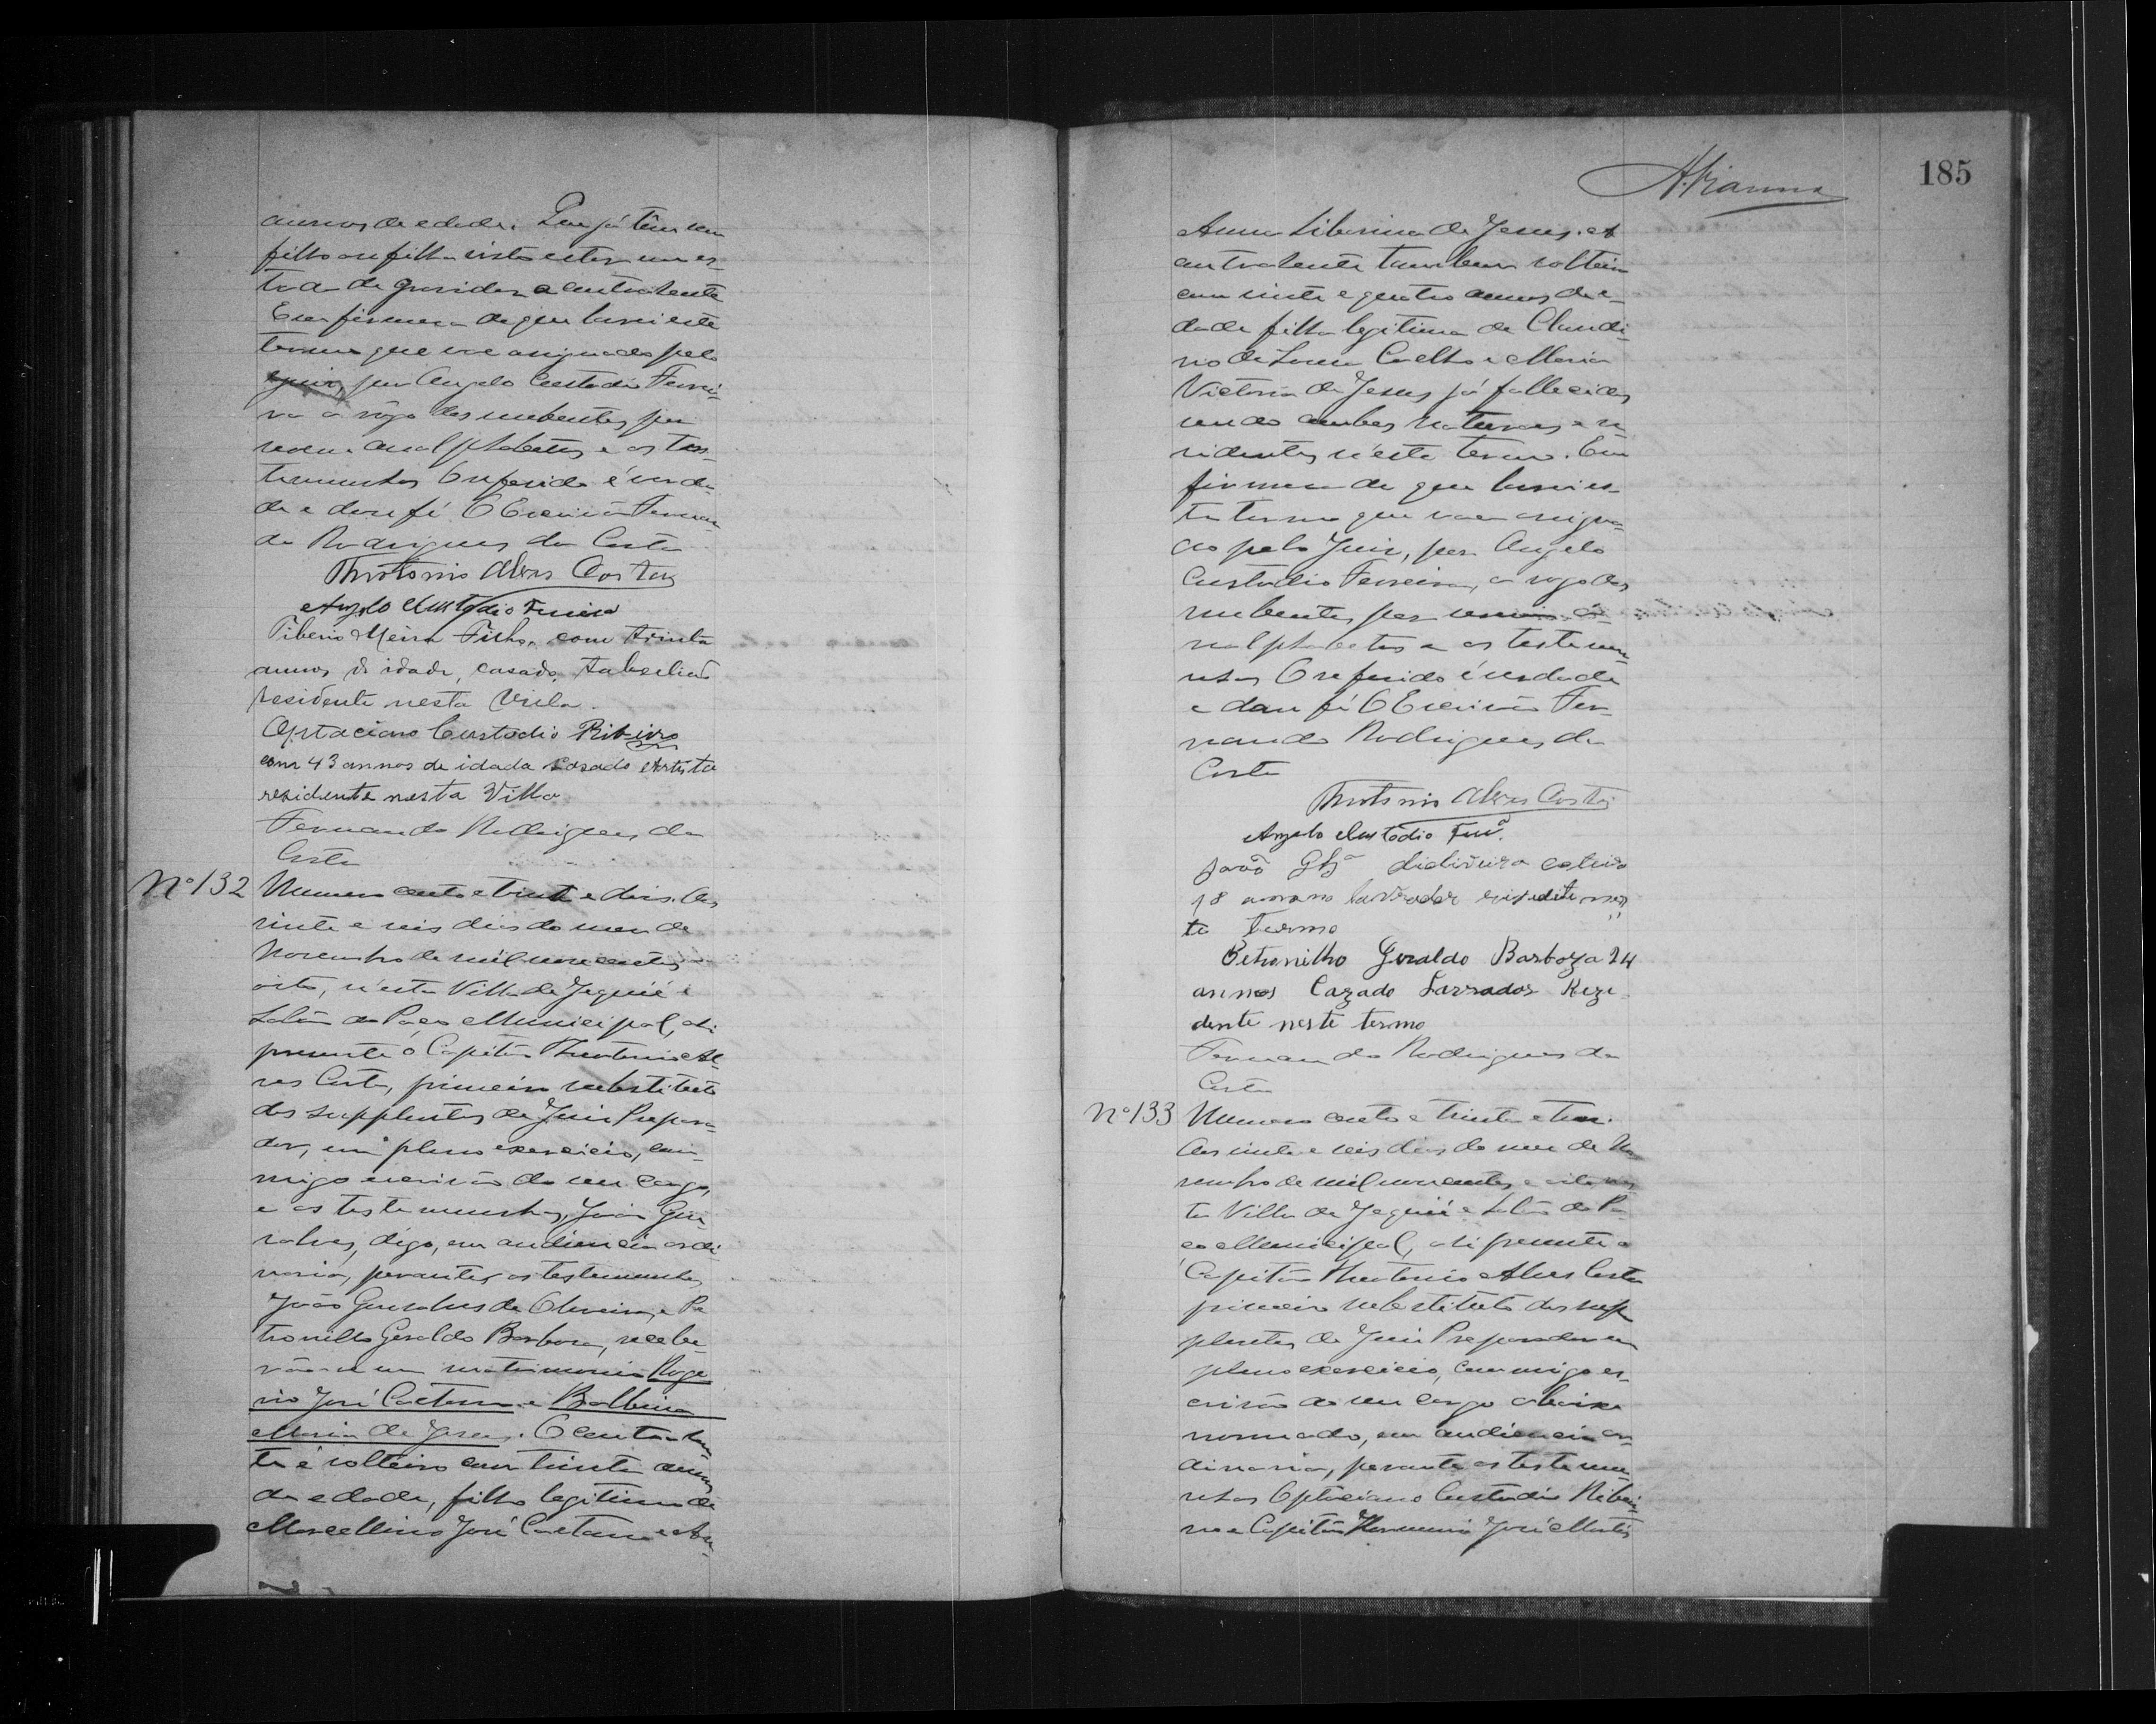 annos de edade. Que já têm um
filho ou filha visto estar em es-
tado de gravidez a contratante
Em firmesa de que lavrei este
termo que vae assignado pelo
Juiz, por Angelo Custodio Ferrei-
ra a rôgo dos nubentes por
serem analphabetos e as tes-
temunhas O referido é verda-
de e dou fé O Escrivão Fernan-
do Rodrigues da Costa
Theotonio Alves Costa
Angelo Custodio Ferreira
Tiberio Meira Filho, com trinta
annos de idade, casado, tabellião
residente nesta Villa.
Optaciano Custodio Ribeiro
com 43 annos de idada Casado Artista
residente nesta Villa
Fernando Rodrigues da
Costa
Nº 132 Numero cento e trinta e dois. Aos
vinte e seis dias do mez de
Novembro de mil novecentos e
oito, n'esta Villa de Jequié e
Salão do Paço Municipal, ahi
presente o Capitão Theotonio Al-
ves Costa, primeiro substituto
dos supplentes do Juiz Prepara-
dor, em pleno exercicio, com-
migo escrivão do seu cargo,
e as testemunhas, João Gon-
salves, digo, em audiencia ordi-
naria, perante as testemunhas
João Gonsalves de Oliveira, e Pe
tronilho Geraldo Barbosa, recebe-
rão-se em matrimonio Roge
rio José Caetano e Balbina
Maria de Jesus. O contratan-
te é solteiro com trinta annos
de edade, filho legitimo de
Marcellino José Caetano e An-
185
A. Vianna
Anna Liberina de Jesus. A
contratente tambem solteira
com vinte e quatro annos de e-
dade filha legitima de Claudi-
no de Coelho e Maria
Victoria de Jesus já fallecidos
sendo ambos naturaes e re-
sidentes n'este termo. Em
firmesa de que lavrei es-
te termo que vae assigna-
do pelo Juiz, por Angelo
Custodio Ferreira, a rogo dos
nubentes por serem a-
nalphabetos e as testemu-
nhas O referido é verdade
e dou fé O Escrivão Fer-
nando Rodrigues da
Costa
Theotonio Alves Costa
Angelo Custodio Ferrª.
João Glz
18 annos lavrador nes
te Termo
Petronilho Geraldo Barboza 24
annos Cazado Lavrador Reze-
dente neste termo
Fernando Rodrigues da
Costa
Nº 133 Numero cento e trinta e tres.
Aos vinte e seis dias do mez de No
vembro de mil novecentos e oito nes
ta Villa de Jequié e Salão do Pa-
ço Municipal, ahi presente o
Capitão Theotonio Alves Costa
primeiro substituto dos sup
plentes do Juiz Preparador em
pleno exercicio, commigo es-
crivão do seu cargo abaixo
nomeado, em audiencia or-
dinaria, perante as testemu-
nhas Optaciano Custodio Ribei-
ro e Capitão José Martins